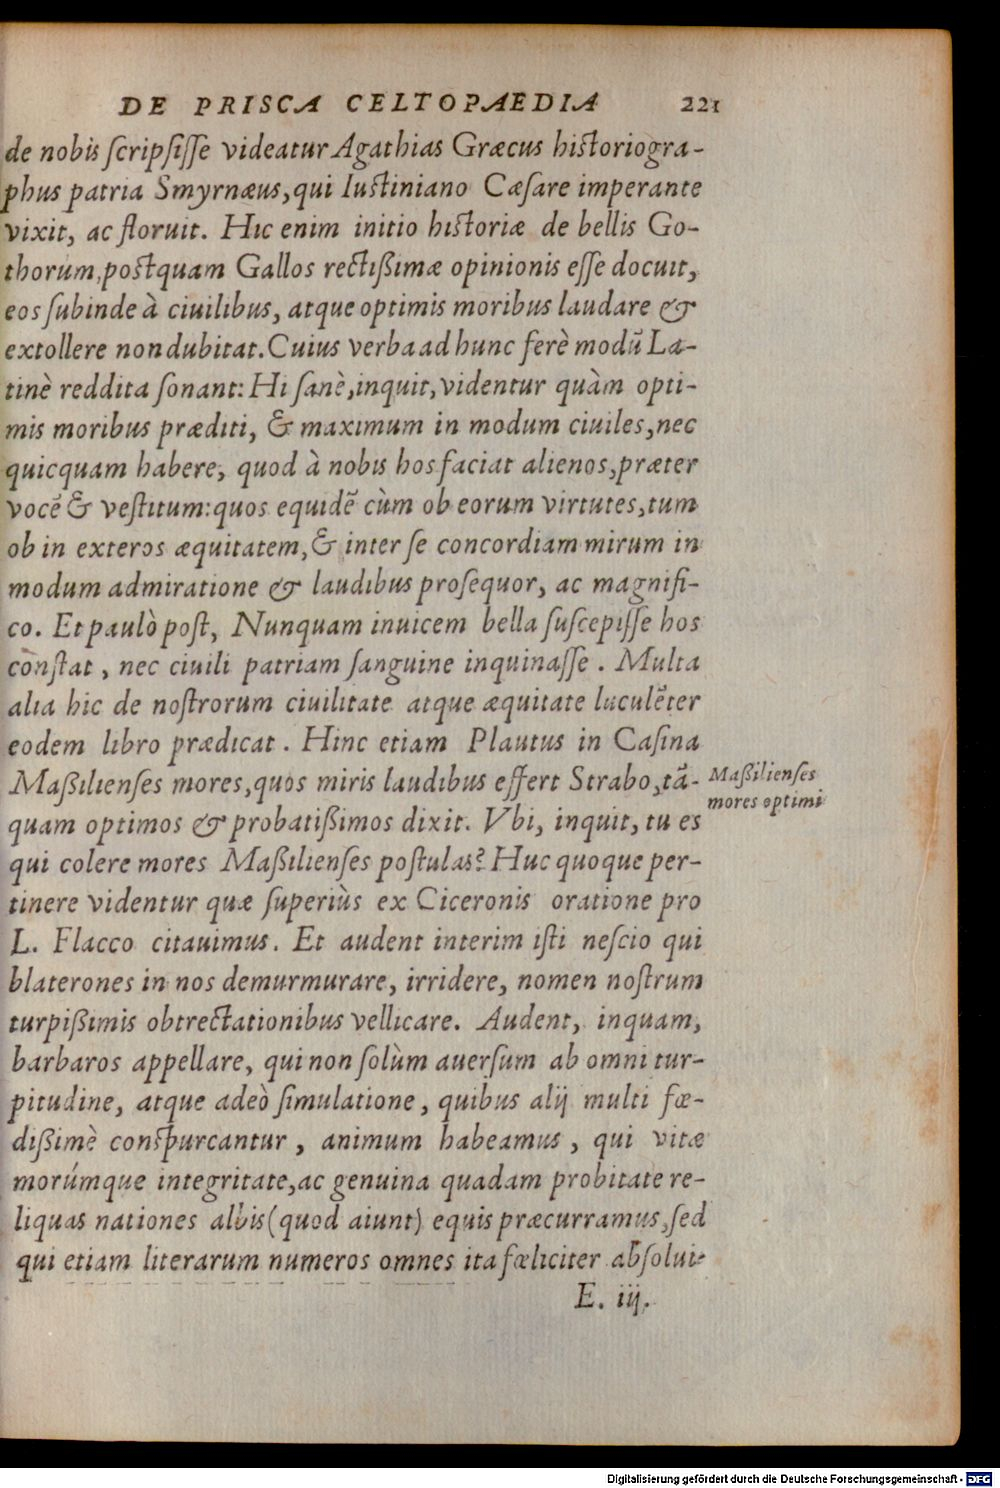 DE PRISCA CELTOPAEDIA 221
de nobis scripsisse videatur Agathias Græcus historiogra-
phus patria Smyrnæus, qui Iustiniano Cæsare imperante
vixit, ac floruit. Hic enim initio historiæ de bellis Go-
thorum, postquam Gallos rectißimæ opinionis esse docuit,
eos subinde à ciuilibus, atque optimis moribus laudare &
extollere non dubitat. Cuius verba ad hunc ferè modū La-
tinè reddita sonant: Hi sanè, inquit, videntur quàm opti-
mis moribus præditi, & maximum in modum ciuiles, nec
quicquam habere, quod à nobis hos faciat alienos, præter
vocē & vestitum: quos equidē cùm ob eorum virtutes, tum
ob in exteros æquitatem, & inter se concordiam mirum in
modum admiratione & laudibus prosequor, ac magnifi-
co. Et paulò post, Nunquam inuicem bella suscepisse hos
constat, nec ciuili patriam sanguine inquinasse. Multa
alia hic de nostrorum ciuilitate atque æquitate luculēter
eodem libro prædicat. Hinc etiam Plautus in Casina
Maßilienses mores, quos miris laudibus effert Strabo, tā-
quam optimos & probatißimos dixit. Vbi, inquit, tu es
qui colere mores Maßilienses postulas? Huc quoque per-
tinere videntur quæ superiùs ex Ciceronis oratione pro
L. Flacco citauimus. Et audent interim isti nescio qui
blaterones in nos demurmurare, irridere, nomen nostrum
turpißimis obtrectationibus vellicare. Audent, inquam,
barbaros appellare, qui non solùm auersum ab omni tur-
pitudine, atque adeò simulatione, quibus alij multi fœ-
dißimè conspurcantur, animum habeamus, qui vitæ
morúmque integritate, ac genuina quadam probitate re-
liquas nationes albis (quod aiunt) equis præcurramus, sed
qui etiam literarum numeros omnes ita fœliciter absolui-
E. iij.
Maßilienses
mores optimi
Digitalisierung gefördert durch die Deutsche Forschungsgemeinschaft - DFG